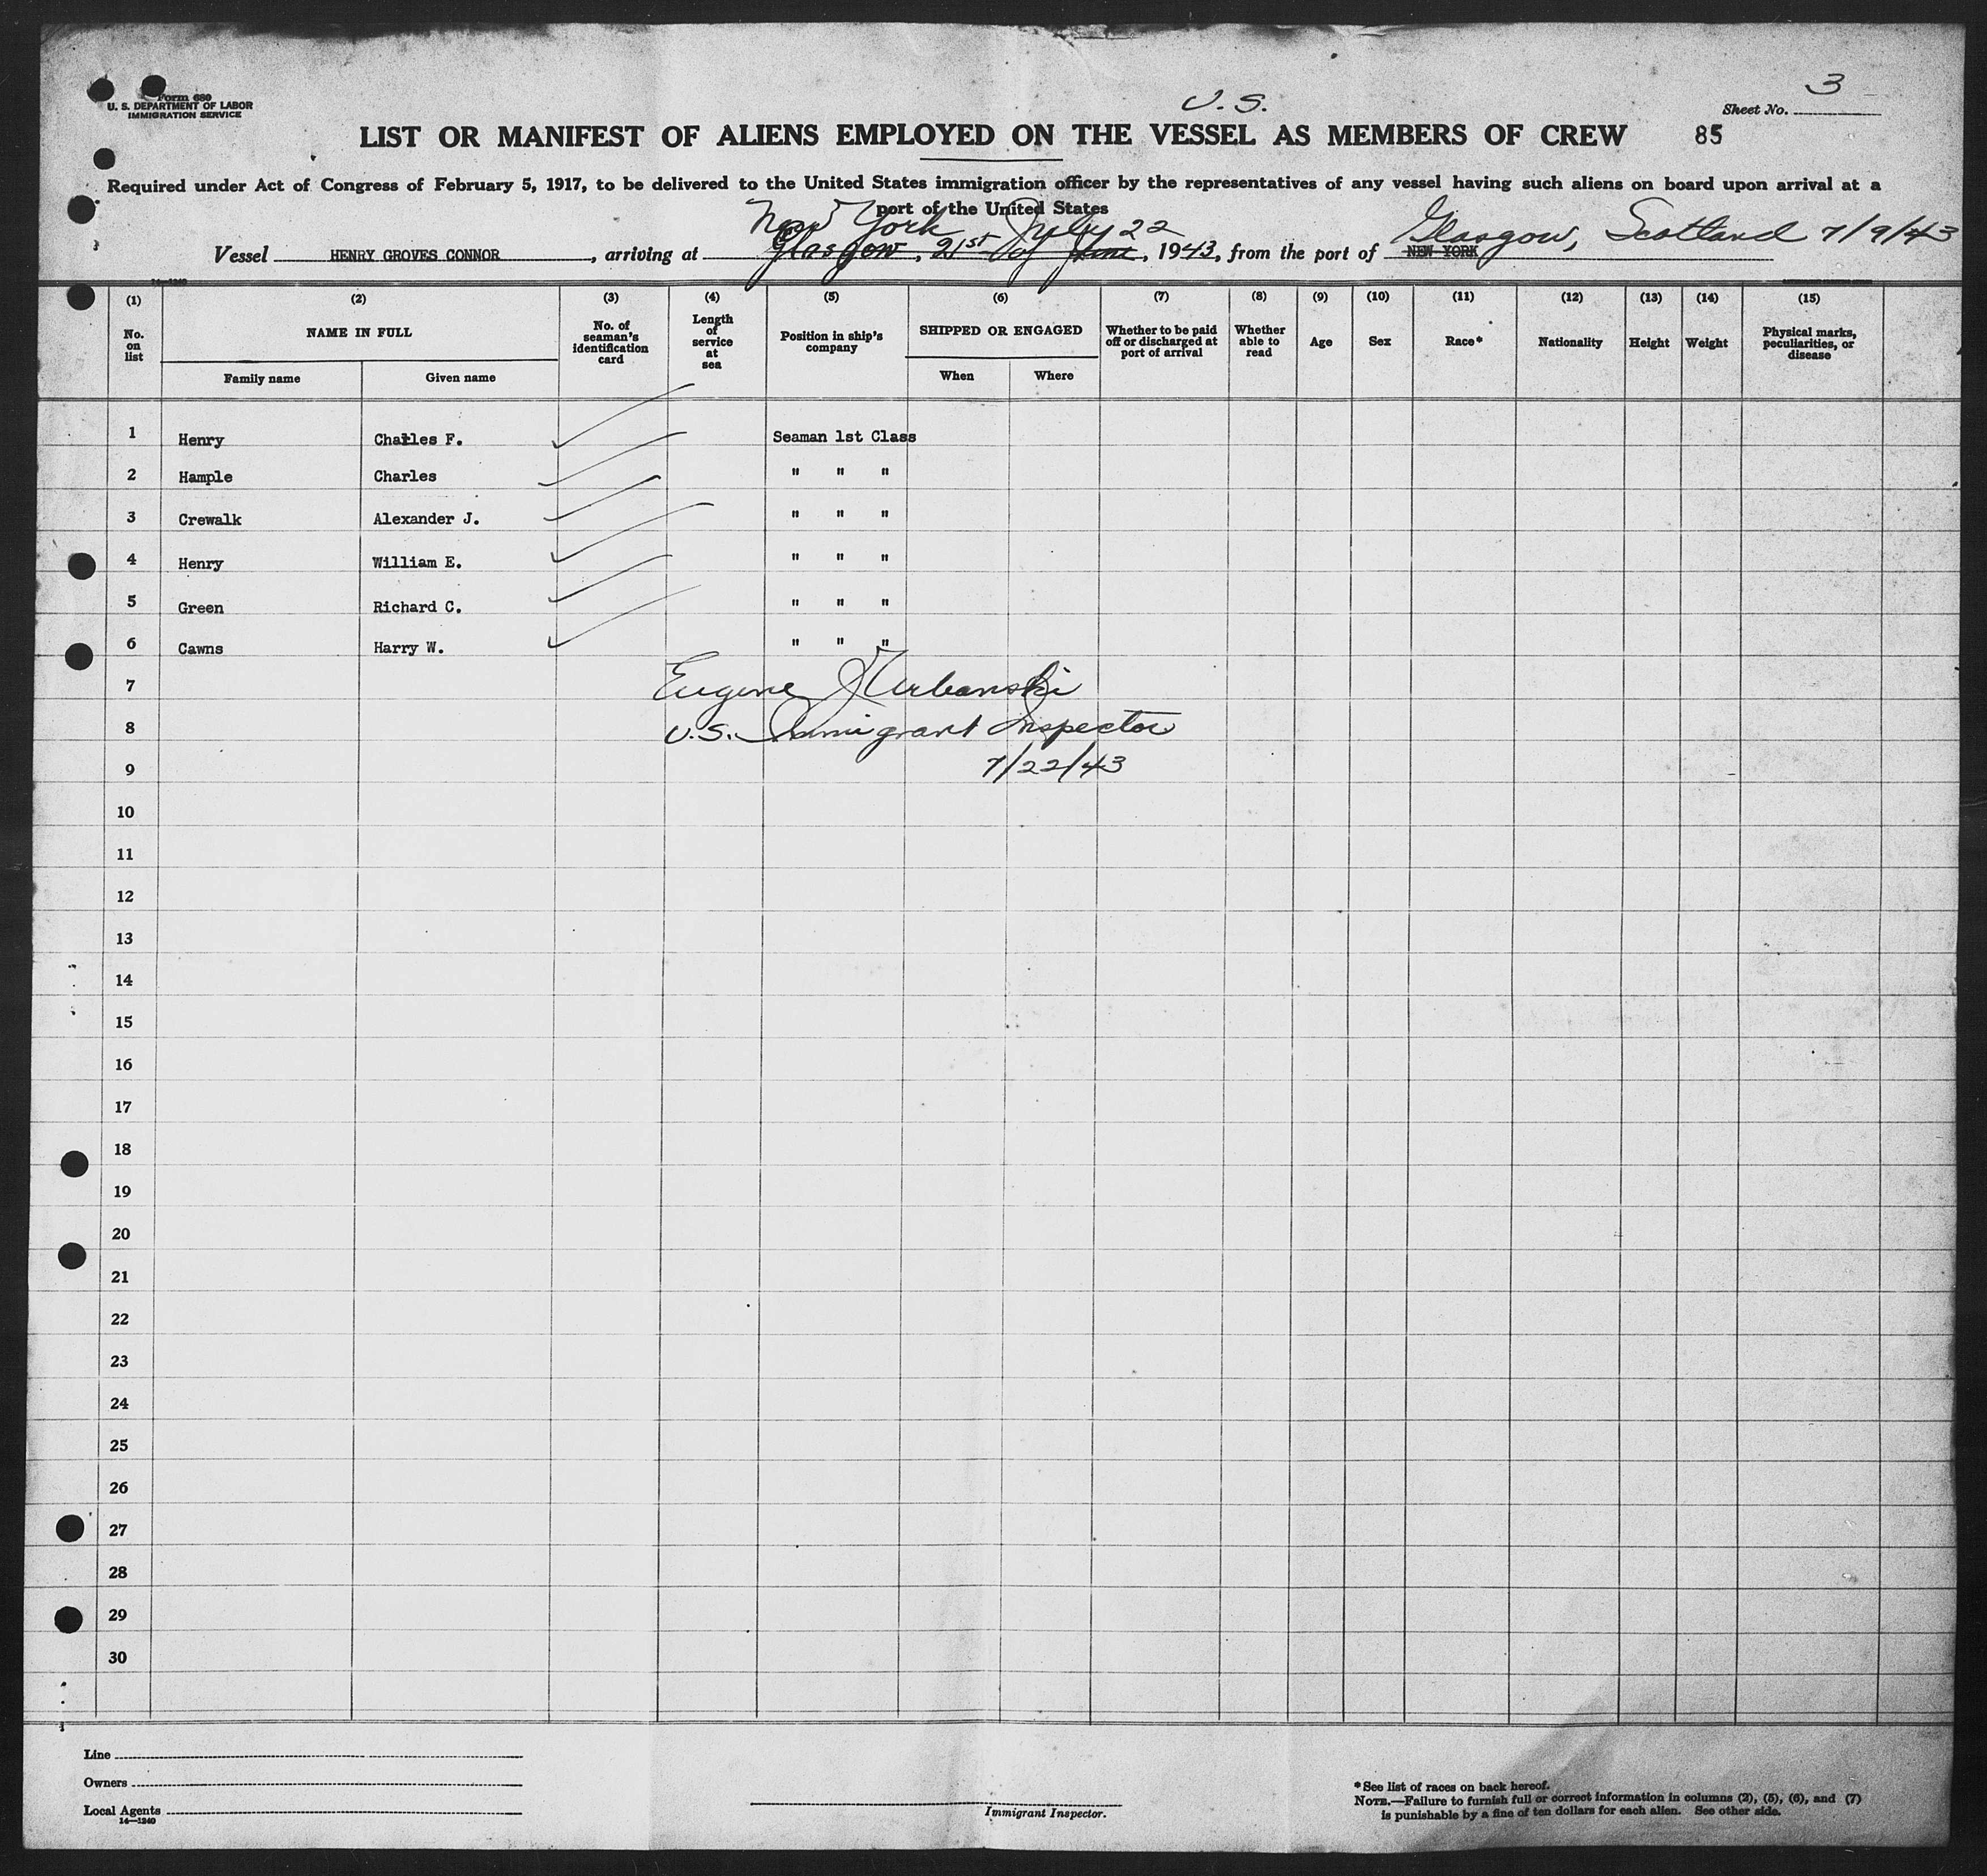 Form 680
U. S. DEPARTMENT OF LABOR
IMMIGRATION SERVICE
U. S.
Sheet No. 3
LIST OR MANIFEST OF ALIENS EMPLOYED ON THE VESSEL AS MEMBERS OF CREW
85
Required under Act of Congress of February 5, 1917, to be delivered to the United States immigration officer by the representatives of any vessel having such aliens on board upon arrival at a
port of the United States
New York July 22 Glasgow, Scotland 7/9/43
Vessel HENRY GROVES CONNOR, arriving at Glasgow, 21st of June, 1943, from the port of NEW YORK
14—1240
(1) (2) (3) (4) (5) (6) (7) (8) (9) (10) (11) (12) (13) (14) (15)
No. on list
NAME IN FULL
Family name
Given name
No. of seaman's identification card
Length of service at sea
Position in ship's company
SHIPPED OR ENGAGED
When
Where
Whether to be paid off or discharged at port of arrival
Whether able to read
Age
Sex
Race*
Nationality
Height
Weight
Physical marks, peculiarities, or disease
1 Henry Charles F. Seaman 1st Class
2 Hample Charles " " "
3 Crewalk Alexander J. " " "
4 Henry William E. " " "
5 Green Richard C. " " "
6 Cawns Harry W. " " "
7 Eugene Urbanski
8 U.S. Immigrant Inspector
9 7/22/43
10
11
12
13
14
15
16
17
18
19
20
21
22
23
24
25
26
27
28
29
30
Line
Owners
Local Agents
14—1240
Immigrant Inspector.
* See list of races on back hereof.
NOTE.—Failure to furnish full or correct information in columns (2), (5), (6), and (7)
is punishable by a fine of ten dollars for each alien. See other side.